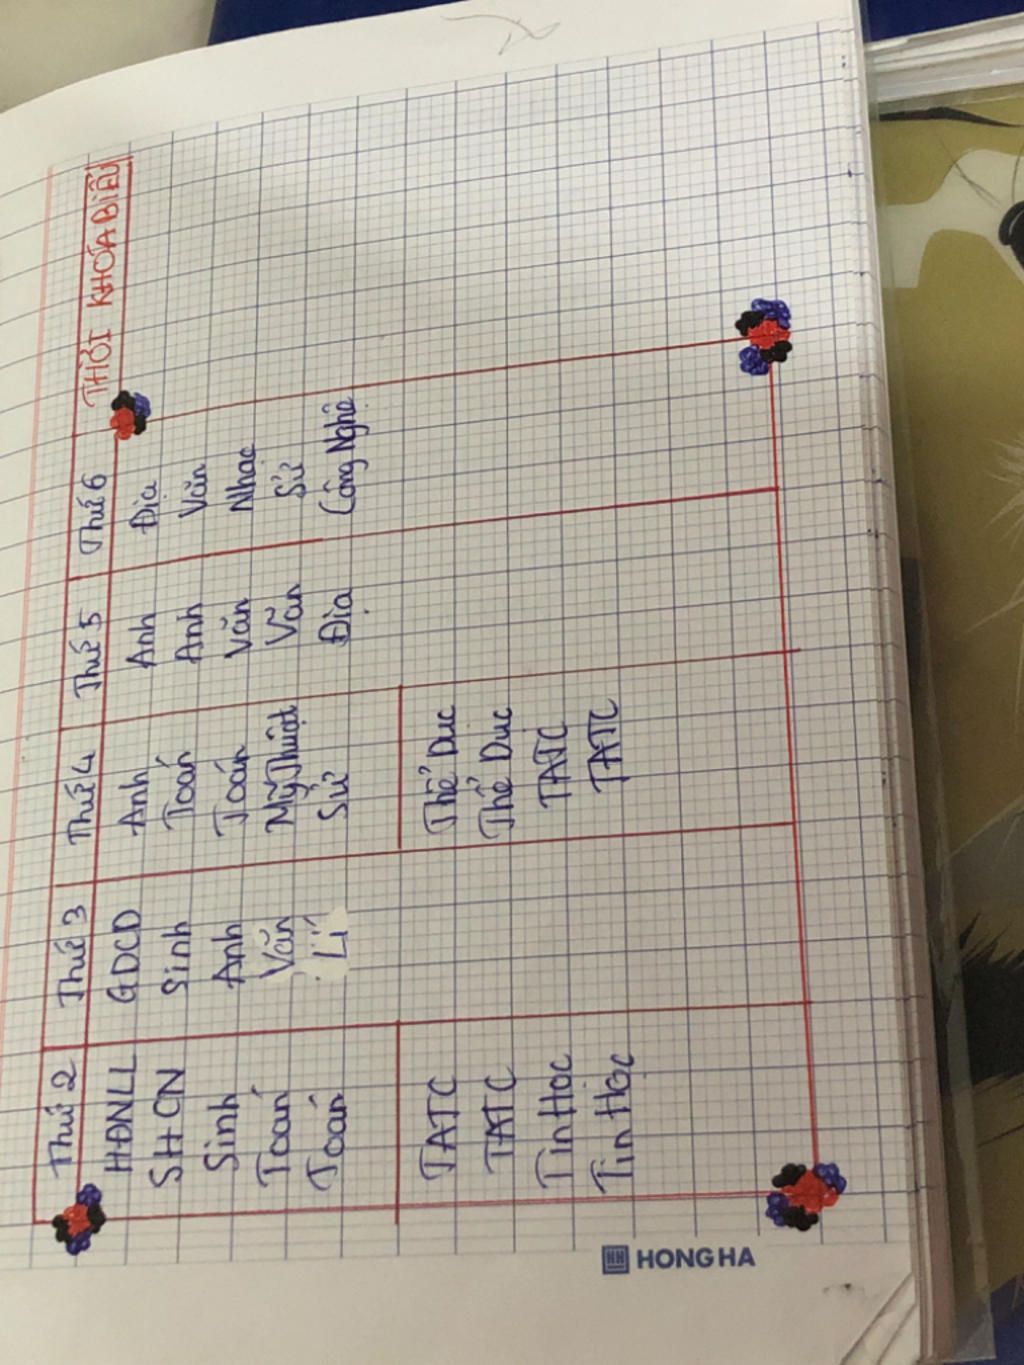 THỜI KHÓA BIỂU
Thứ 2 Thứ 3 Thứ 4 Thứ 5 Thứ 6
HĐNLL GDCD Anh Anh Địa
SHCN Sinh Toán Anh Văn
Sinh Anh Toán Văn Nhạc
Toán Văn Mỹ Thuật Văn Sử
Toán Lí Sử Địa Công Nghệ
TATC Thể Dục
TATC Thể Dục
Tin Học TATC
Tin Học TATC
HH HONG HA